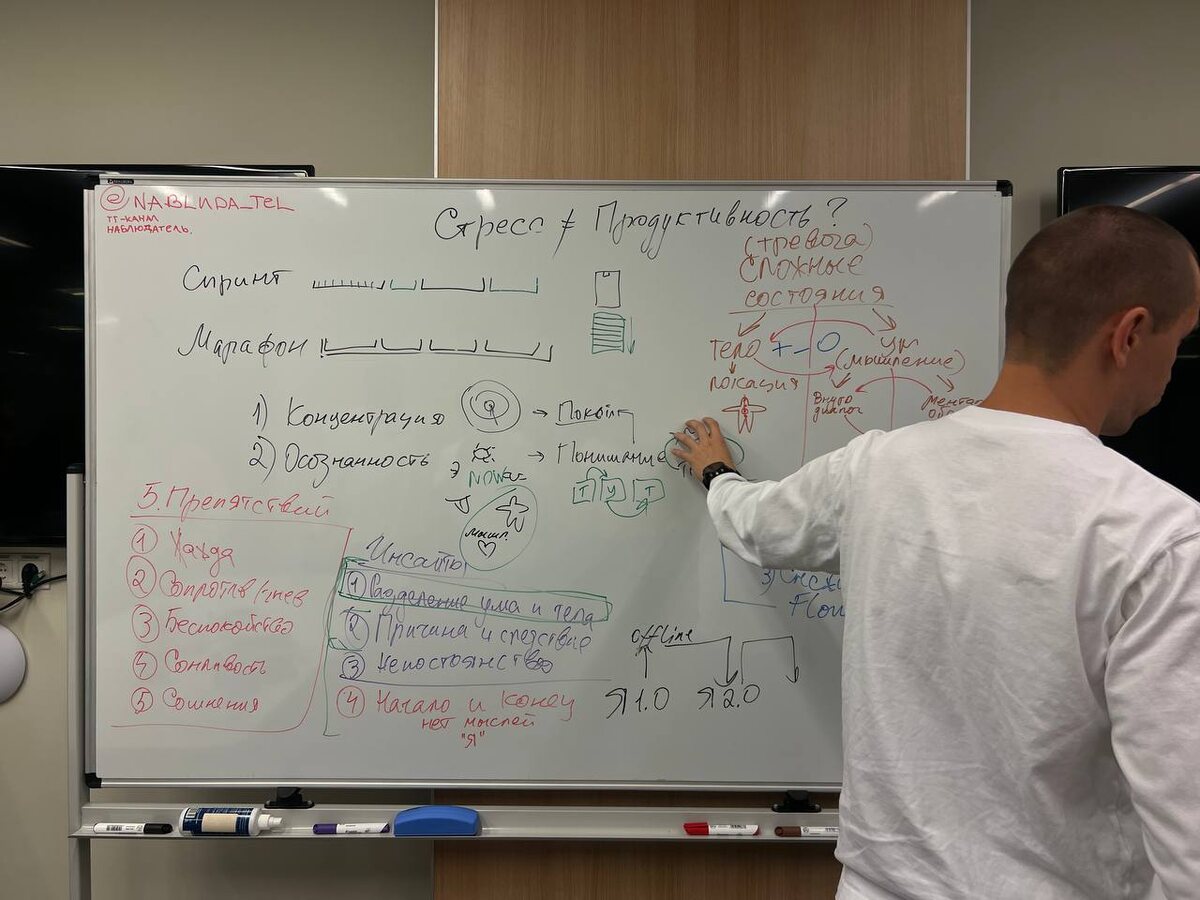 @ NABLUDA_TEL
ТГ-КАНАЛ
НАБЛЮДАТЕЛЬ.
Стресс ≠ Продуктивность?
Спринт
Марафон
1) Концентрация → Покой
2) Осознанность → Понимание
NOW
мышл.
Т У Т
(тревога)
сложные
состояния
тело + - 0 ум
(мышление)
локация
Внутр
диалог
5. Препятствий
1 Жажда
2 Сопротив/гнев
3 Беспокойство
4 Сонливость
5 Сомнения
Инсайты
1 Разделение ума и тела
2 Причина и следствие
3 Непостоянство
4 Начало и конец
нет мыслей
"Я"
3)
offline
Я 1.0 Я 2.0